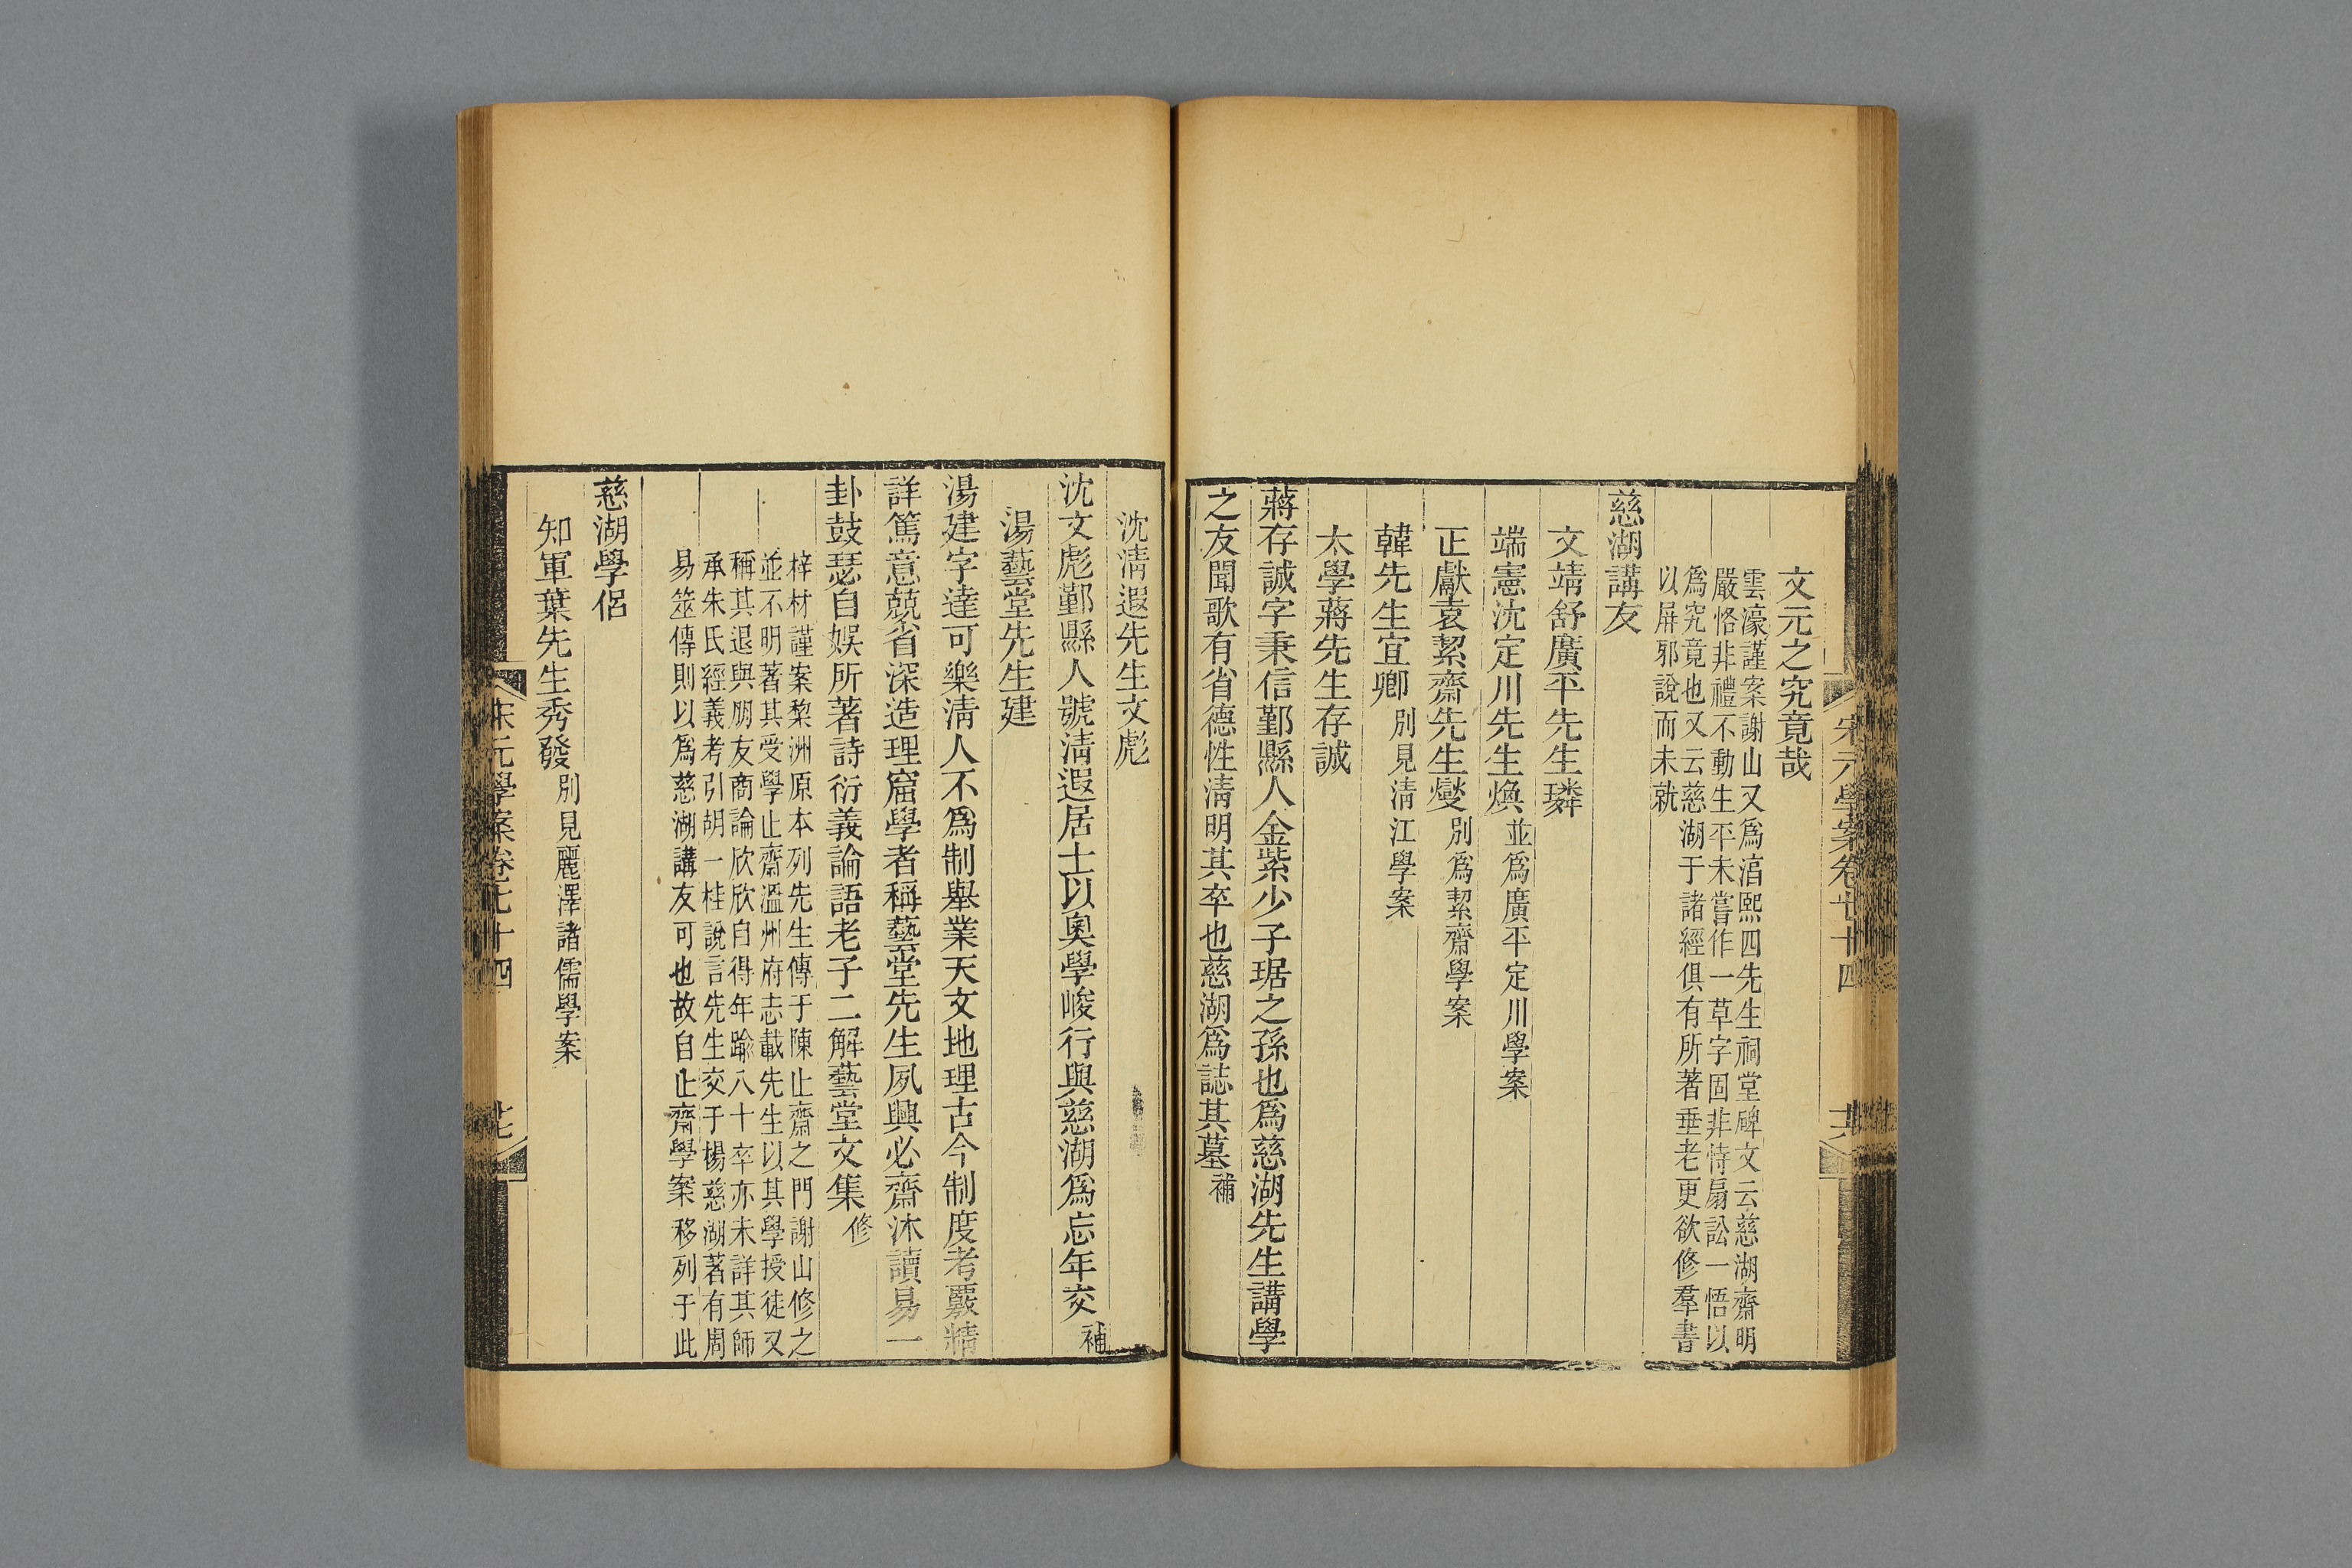 宋元學案卷七十四
文元之究竟哉
雲濠謹案謝山又爲湻熙四先生祠堂碑文云慈湖齋明
嚴恪非禮不動生平未嘗作一草字固非恃扇訟一悟以
爲究竟也又云慈湖于諸經俱有所著垂老更欲修羣書
以屏邪說而未就
慈湖講友
文靖舒廣平先生璘
端憲沈定川先生煥並爲廣平定川學案
正獻袁絜齋先生燮別爲絜齋學案
韓先生宜卿別見清江學案
太學蔣先生存誠
蔣存誠字秉信鄞縣人金紫少子琚之孫也爲慈湖先生講學
之友聞歌有省德性淸明其卒也慈湖爲誌其墓補
沈淸遐先生文彪
沈文彪鄞縣人號淸遐居士以奧學峻行與慈湖爲忘年交補
湯藝堂先生建
湯建字達可樂淸人不爲制舉業天文地理古今制度考覈精
詳篤意兢省深造理窟學者稱藝堂先生夙興必齋沐讀易一
卦鼓瑟自娛所著詩衍義論語老子二解藝堂文集修
梓材謹案黎洲原本列先生傳于陳止齋之門謝山修之
並不明著其受學止齋溫州府志載先生以其學授徒又
稱其退與朋友商論欣欣自得年踰八十卒亦未詳其師
承朱氏經義考引胡一桂說言先生交于楊慈湖著有周
易筮傳則以爲慈湖講友可也故自止齋學案移列于此
慈湖學侶
知軍葉先生秀發別見麗澤諸儒學案
宋元學案卷七十四